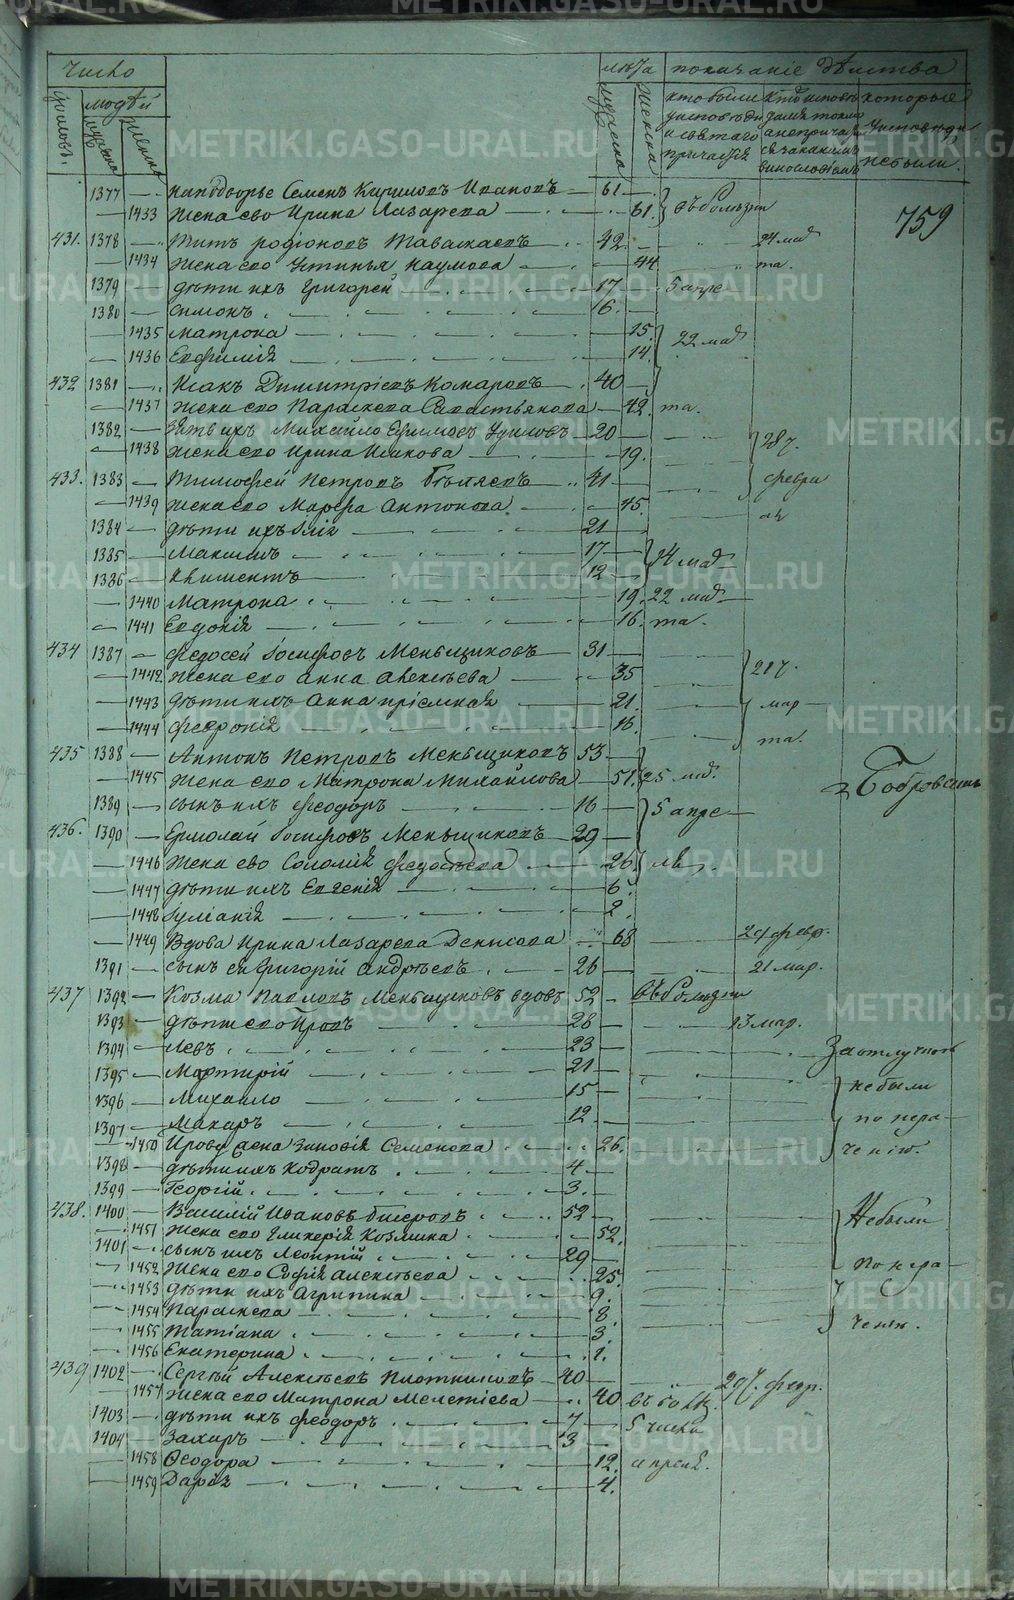 число лѣта показаніе дѣиства
домовъ. людѣй мужеска женска кто были исповѣди и святаго причастія которые исповѣди небыли.
мужеска женска
1377 Семенъ Кирилов Иванов 61
1433 жена ево Ирина Лазарева 61. въ болѣзни
759
431. 1378 Титъ родіонов 42. 24 мар
1434 жена ево Устинья Наумова 44 та.
1379 дѣти ихъ Григорей 17 5 апре
1380 Симонъ 16.
1435 Матрона 15. 22 мар
1436 Евфимія 14.
432 1381 Исакъ Димитріев Комаров 40
1437 жена ево Параскева Савастьянова 42. та.
1382 зять ихъ Михайло Ефимов 20 28 ч.
1438 жена ево Ирина Исакова 19.
433. 1383 Тимофей Петров Бѣляев 41 февра
1439 жена ево Марфа Антонова 45. ля
1384 дѣти ихъ Iлія 21
1385 Максимъ 17 24 мар
1386 Климентъ 12
1440 Матрона 19. 22 мар
1441 Евдокія 16. та.
434 1387 Федосей Iосифовъ Меньщиковъ 31
1442 жена ево Анна Алексѣева 35 21 ч.
1443 дѣти ихъ Анна пріемная 21. мар
1444 Феврония 16. та.
435 1388 Антонъ Петров Меньщиков 53
1445 жена ево Матрона Михайлова 51. 25 мар.
Бобровскимъ
1389 сынъ ихъ Феодоръ 16 5 апре
436. 1390 Ермолай Iосифовъ Меньщиков 29
1446 жена ево Соломія Федосѣева 26. ля
1447 дѣти ихъ Евгенія 6.
1448 Iуліанія 2.
1449 Вдова Ирина Лазарева Денисова 68 24 февр.
1391 сынъ ея Григорій Андрѣевъ 26 21 мар.
437 1392 Козма Павлов Меньщиковъ вдовъ 52 въ болѣзни
1393 дѣти ево Пров 28 13 мар.
1394 Левъ 23 За отлучкой
1395 Мартирій 21 небыли
1396 Михаило 15 по нера
1397 Макаръ 12
1450 Прову жена Зиновія Семенова 26. ченію.
1398 дѣти ихъ Кодратъ 4
1399 Георгій 3.
438. 1400 Василій Ивановъ 52 Небыли
1451 жена ево Гликерія Козмина 52.
1401 сынъ ихъ Леонтій 29
1452 жена ево Софія Алексѣева 25. по нера
1453 дѣти ихъ Агрипина 9.
1454 Параскева 8. ченію.
1455 Татіана 3.
1456 Екатерина 1.
439 1402 Сергѣй Алексѣев Плотников 40 февр.
1457 жена ево Матрона Мелетіева 40
1403 дѣти ихъ Феодоръ 7 5 числа
1404 Захаръ 3
1458 Ѳеодора 12 апреля.
1459 Даря 4.
METRIKI.GASO-URAL.RU